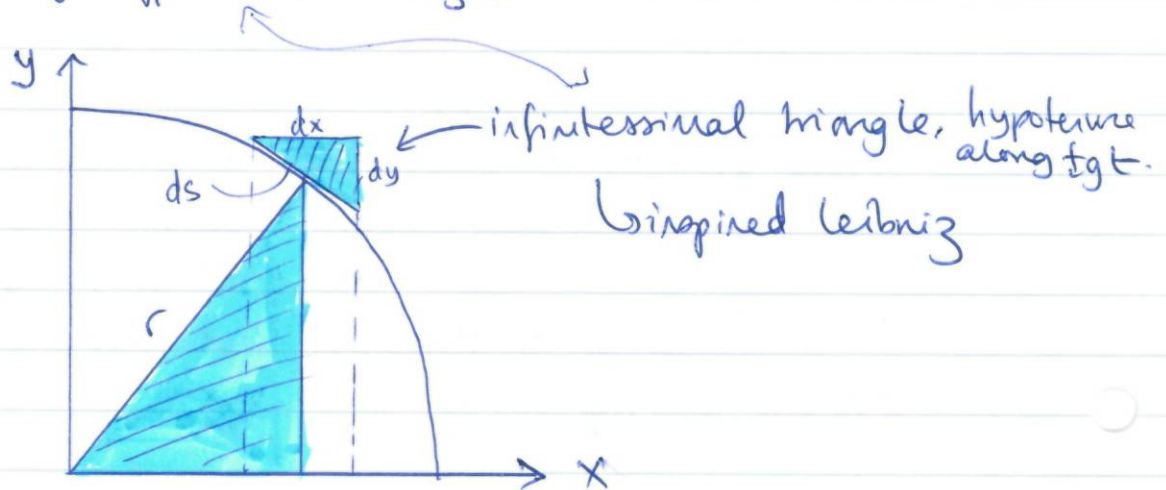 y
dx
infinitessimal triangle, hypotenuse
along tgt.
dy
ds
↳ inspired Leibniz
r
x